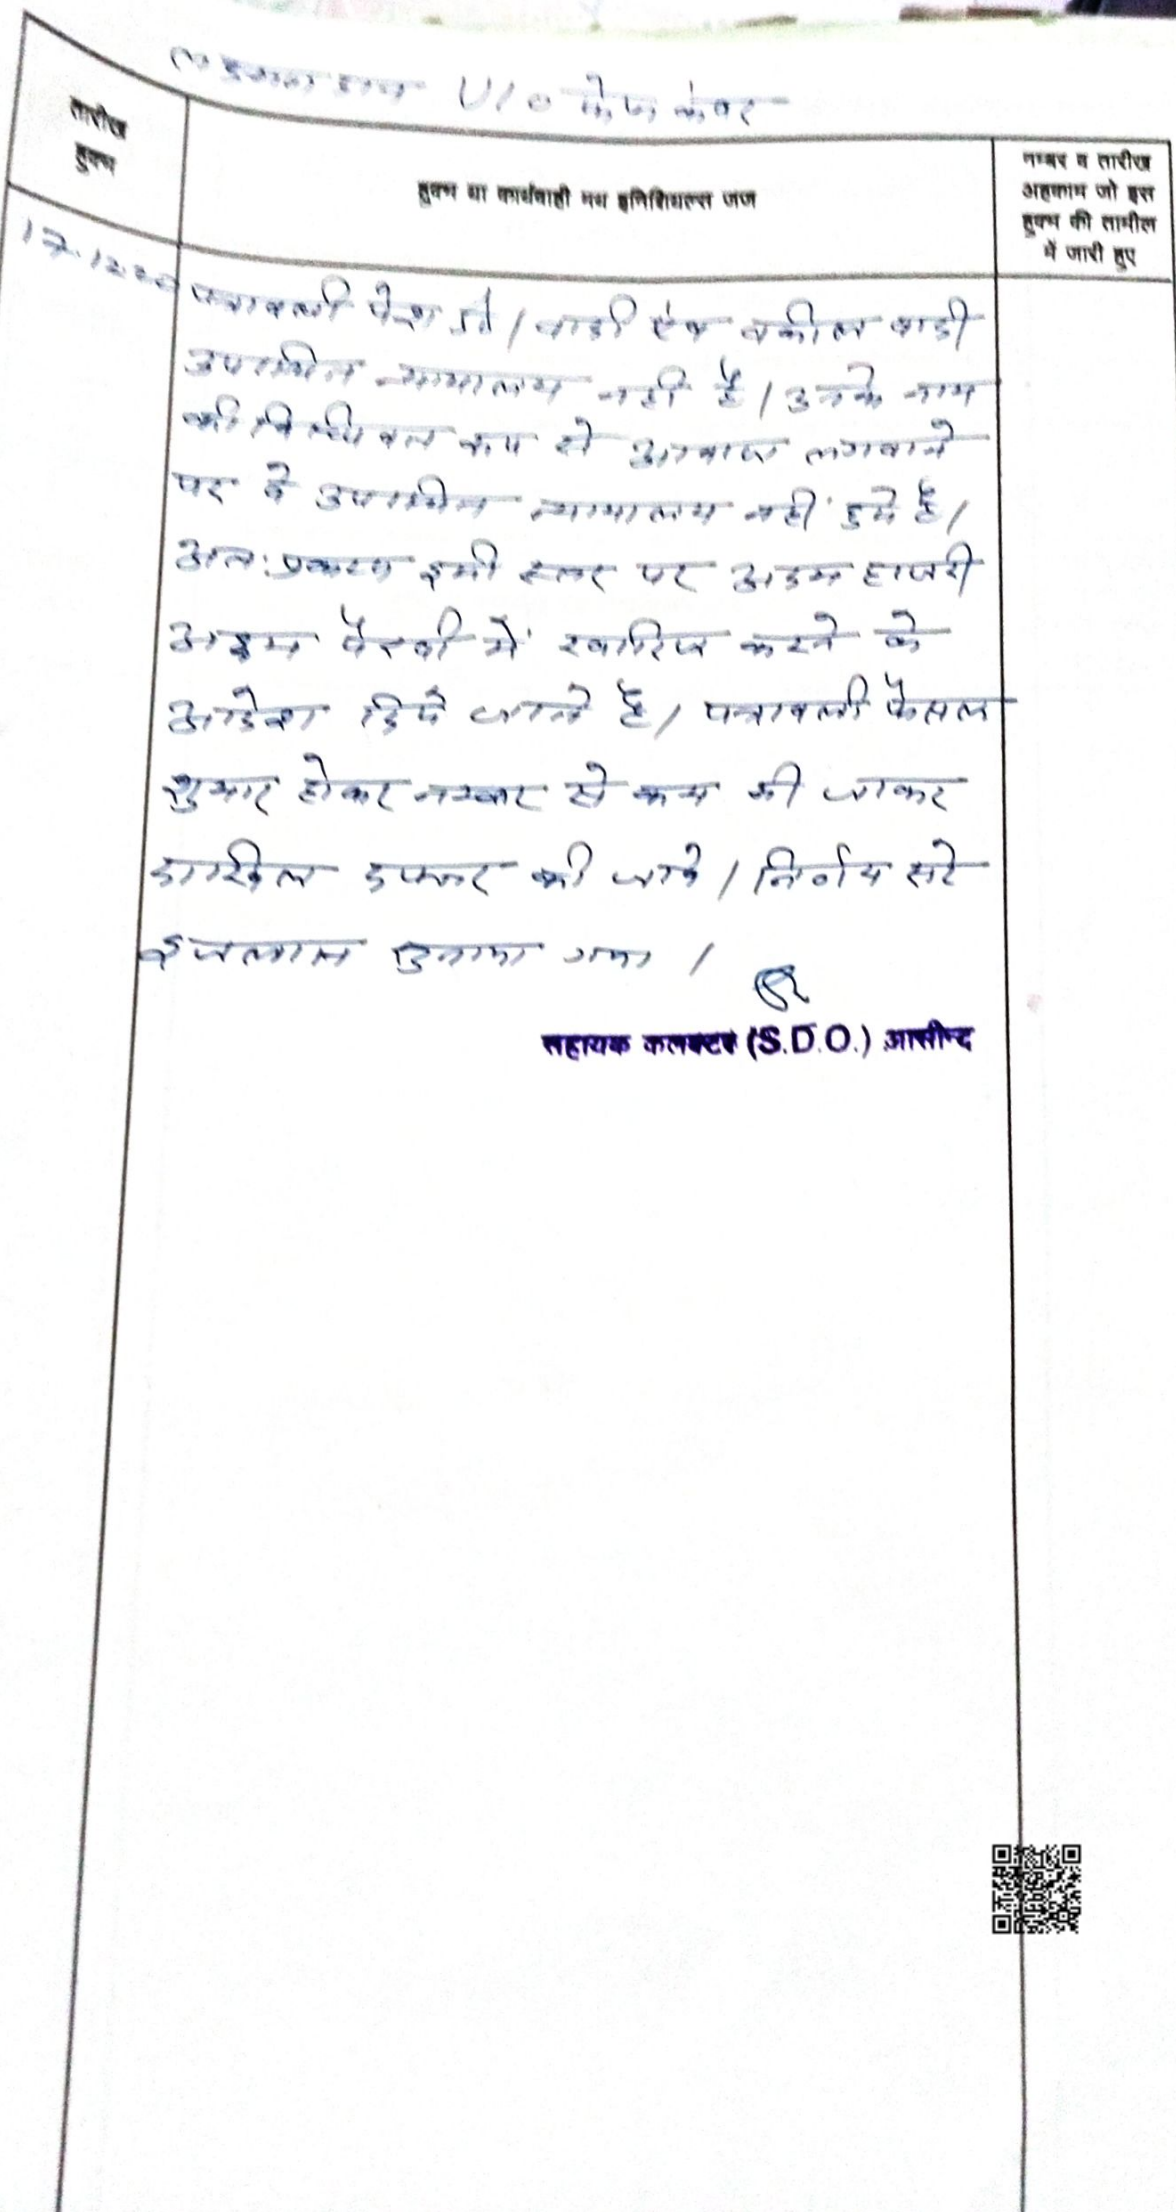 U/o कंवर
तारीख
हुक्म
हुक्म या कार्यवाही मय इनिशियल्स जज
नम्बर व तारीख
अहकाम जो इस
हुक्म की तामील
में जारी हुए
17.12.
पत्रावली पेश हुई। वादी एंव वकील वादी
उपस्थित न्यायालय नही है। उनके नाम
की विधिवत रूप से आवाज लगवाने
पर वे उपस्थित न्यायालय नहीं हुये है।
अतः प्रकरण इसी स्तर पर अदम हाजरी
अदम पैरवी में खारिज करने के
आदेश दिये जाते है। पत्रावली फैसल
शुमार होकर नम्बर से कम की जाकर
दाखिल दफ्तर की जावे। निर्णय सरे
इजलास सुनाया गया।
सहायक कलक्टर (S.D.O.) आसीन्द